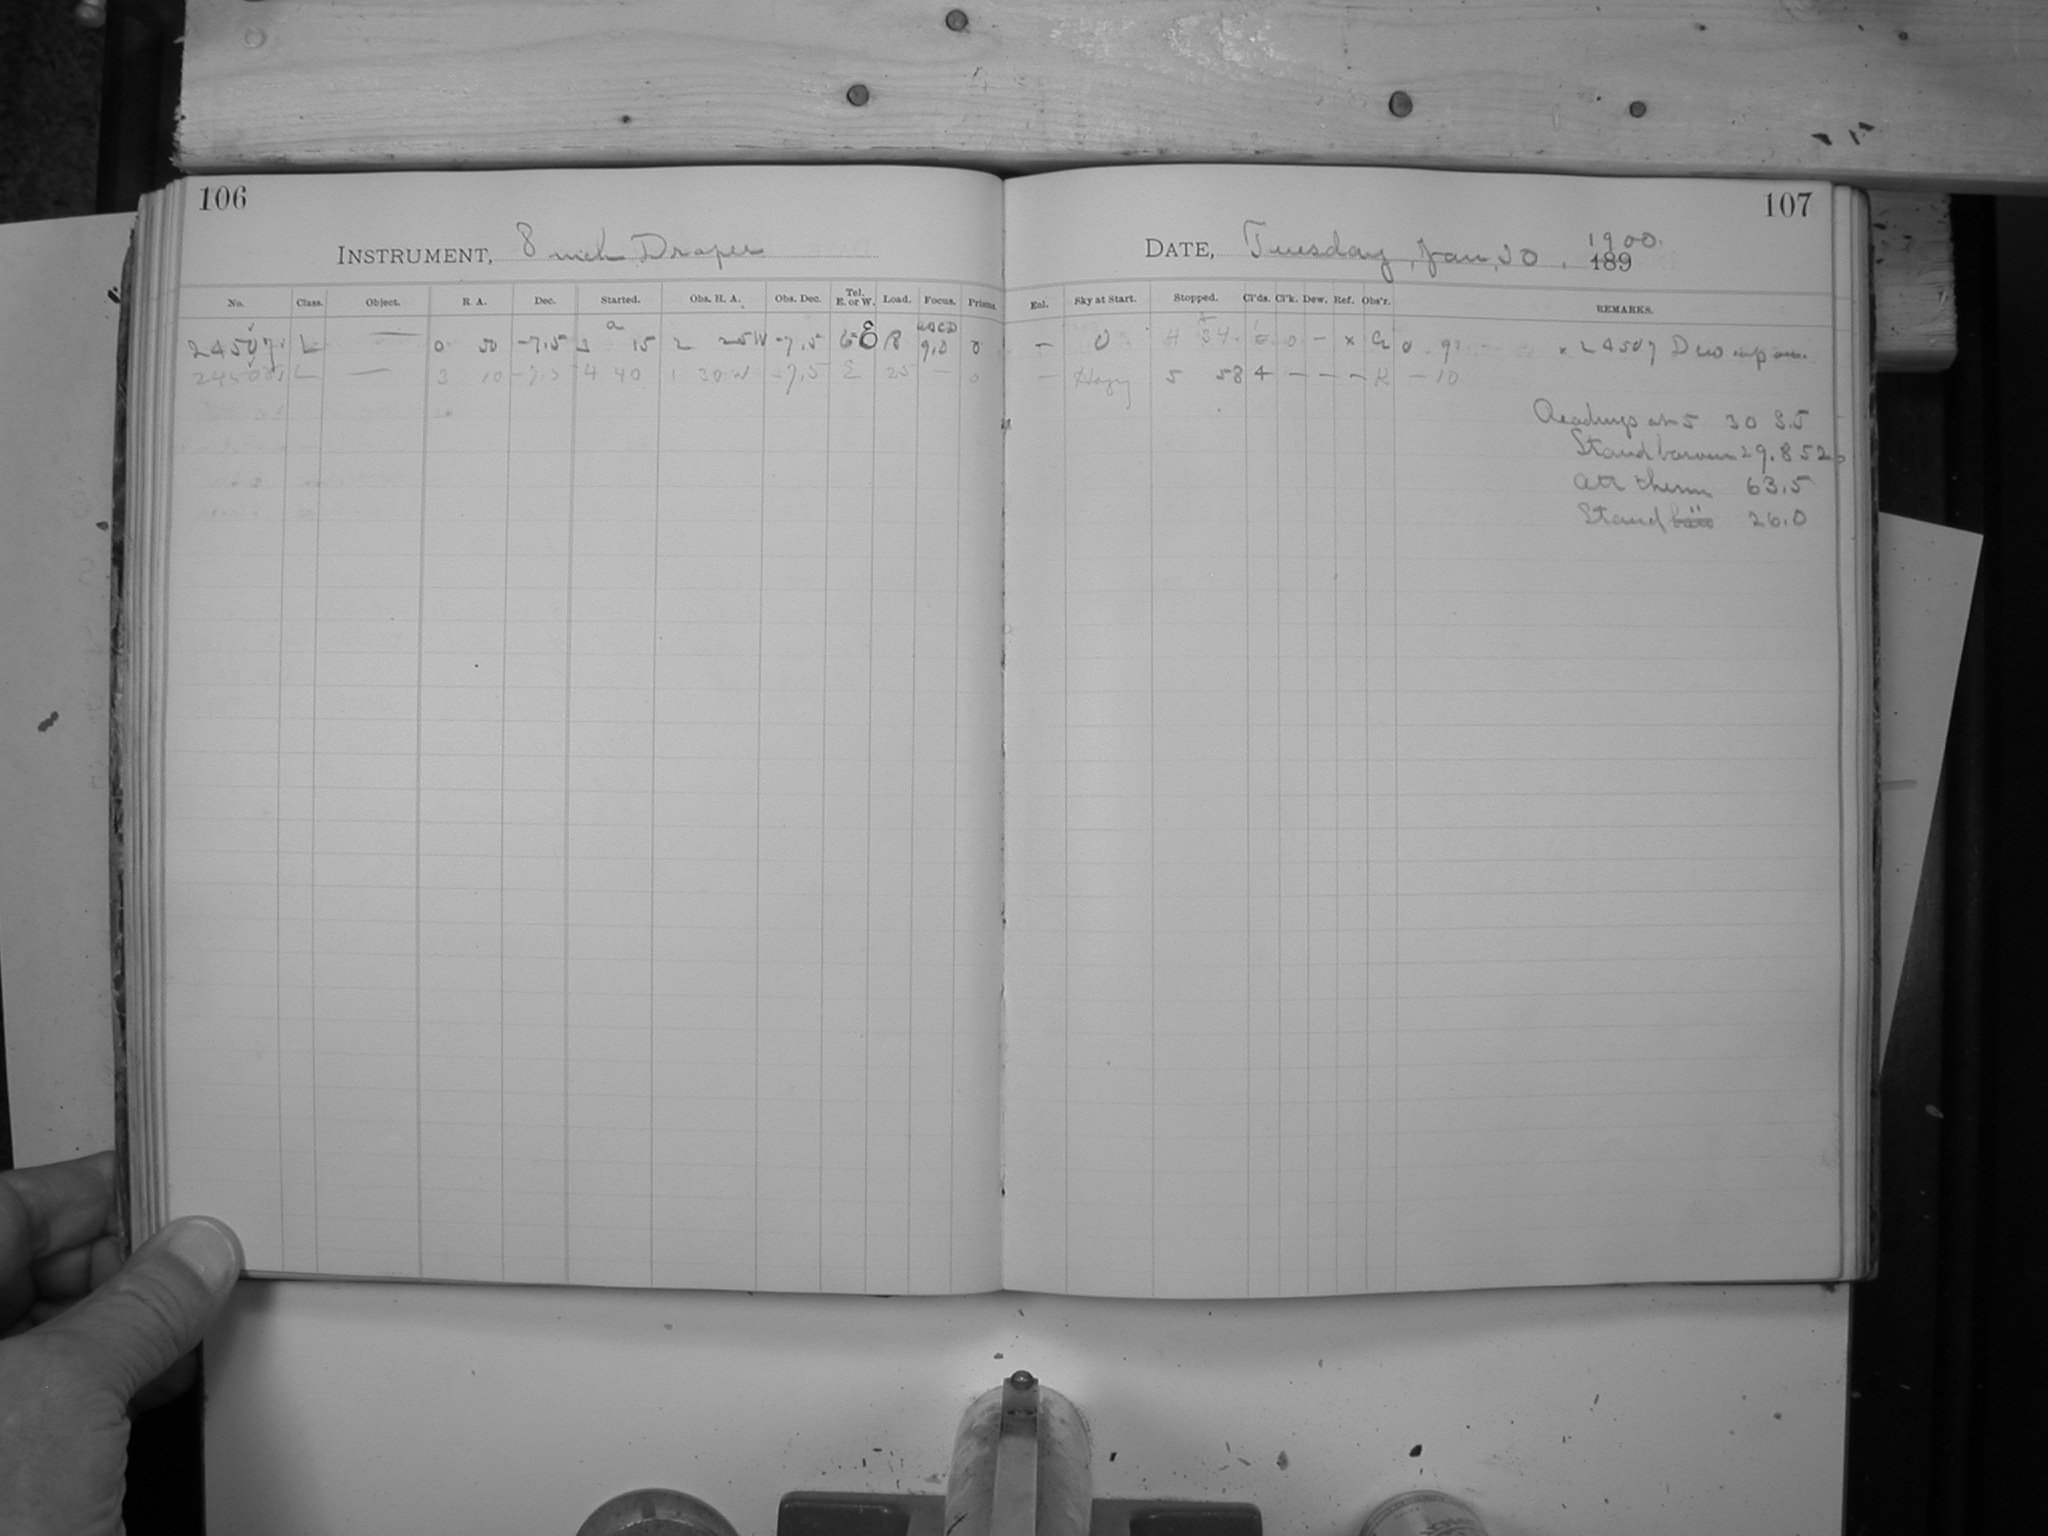 106
107
INSTRUMENT, 8 inch Draper
DATE, Tuesday, Jan. 30. 1900.
189
No. Class. Object. R. A. Dec. Started. Obs. H. A. Obs. Dec. Tel. E. or W. Load. Focus. Prisms.
Enl. Sky at Start. Stopped. Cl'ds. Cl'k. Dew. Ref. Obs'r. REMARKS.
24507 L — 0 50 -7.5 3 15 2 25W -7.5 E 18 9.0 0
— 0 4 34 0 — x x 24507
L — 3 10 -7.5 4 40 1 30W -7.5 E 25 — 0
— Hazy 5 58 4 — — — K —10
Readings at 5 30
Stand barom 29.852
att therm 63.5
Stand 26.0